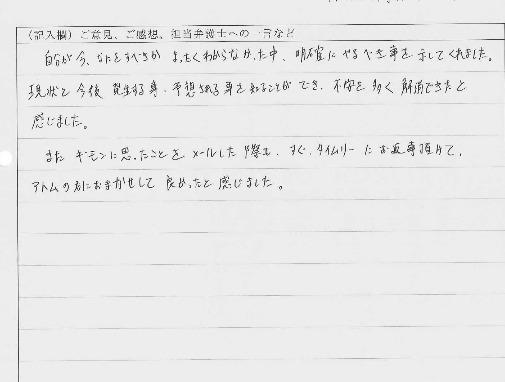 (記入欄)ご意見、ご感想、担当弁護士への一言など
自分が今、なにをすべきか まったくわからなかった中、明確に やるべき事を 示してくれました。
現状と今後 発生する事・予想される事を知ることが でき、不安を多く 解消できたと
感じました。
また ギモンに思ったことを メールした際も、すぐ、タイムリーにお返事頂けて、
アトムの方におまかせして 良かったと 感じました。